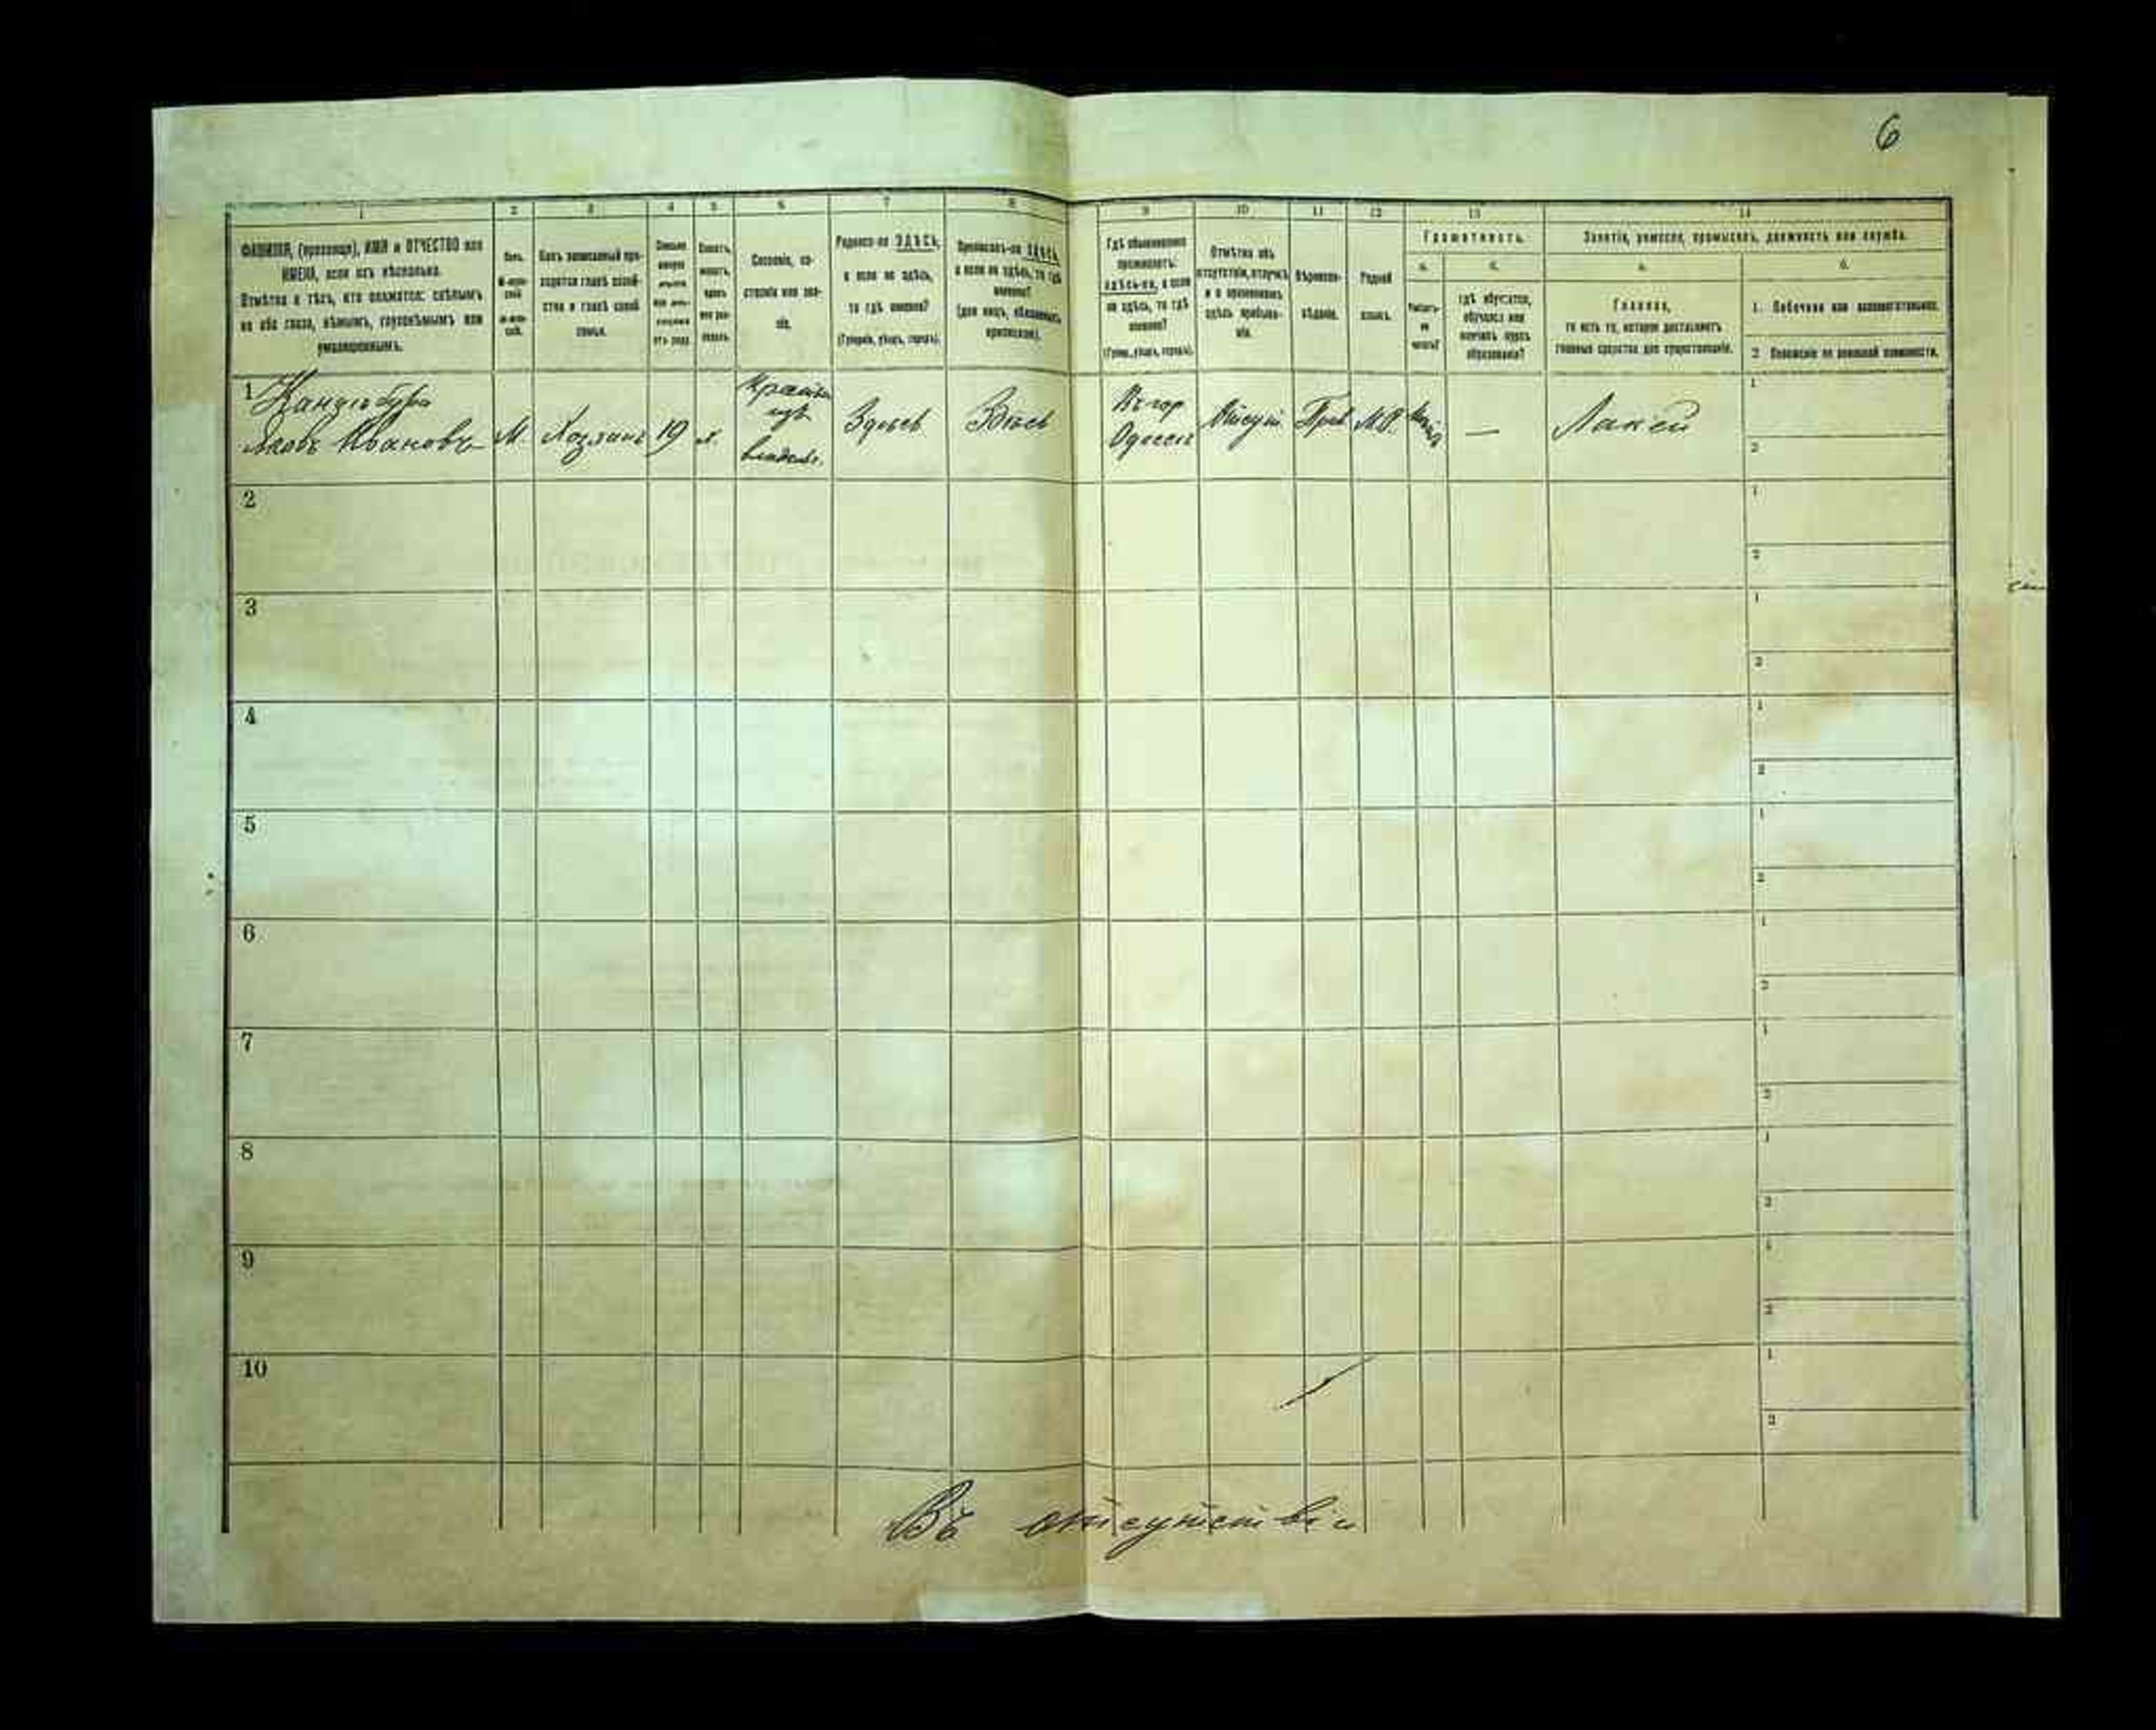 6
1 2 3 4 5 6 7 8 9 10 11 12 13 14
ФАМИЛІЯ, (прозвище), ИМЯ и ОТЧЕСТВО или
ИМЕНА, если ихъ нѣсколько.
Отмѣтка о тѣхъ, кто окажется: слѣпымъ
на оба глаза, нѣмымъ, глухонѣмымъ или
умалишеннымъ.
Полъ.
Какъ записанный при-
ходится главѣ хозяй-
ства и главѣ своей
семьи.
Сословіе, со-
стояніе или зва-
ніе.
Родился-ли ЗДѢСЬ,
а если не здѣсь,
то гдѣ именно?
(Губернія, уѣздъ, городъ).
Приписанъ-ли ЗДѢСЬ,
а если не здѣсь, то гдѣ
именно?
(для лицъ, обязанныхъ
припискою).
Гдѣ обыкновенно
проживаетъ:
здѣсь-ли, а если
не здѣсь, то гдѣ
именно?
(Губер., уѣздъ, городъ).
Отмѣтка объ
отсутствіи, отлучкѣ
и о временномъ
здѣсь пребыва-
ніи.
Вѣроиспо-
вѣданіе.
Родной
языкъ.
Грамотность.
а. б.
Умѣетъ-
ли
читать?
гдѣ обучается,
обучался или
кончилъ курсъ
образованія?
Занятіе, ремесло, промыселъ, должность или служба.
а. б.
Главное,
то есть то, которое доставляетъ
главныя средства для существованія.
1. Побочное или вспомогательное.
2. Положеніе по воинской повинности.
1
Яковъ Ивановъ
М
Хозяинъ
19
х.
владѣл.
Здѣсь
Здѣсь
Въ гор
Одессѣ
Отсут
Прав
М.Р.
—
Лакей
1
2
2
1
2
3
1
2
4
1
2
5
1
2
6
1
2
7
1
2
8
1
2
9
1
2
10
1
2
Въ отсутствіи